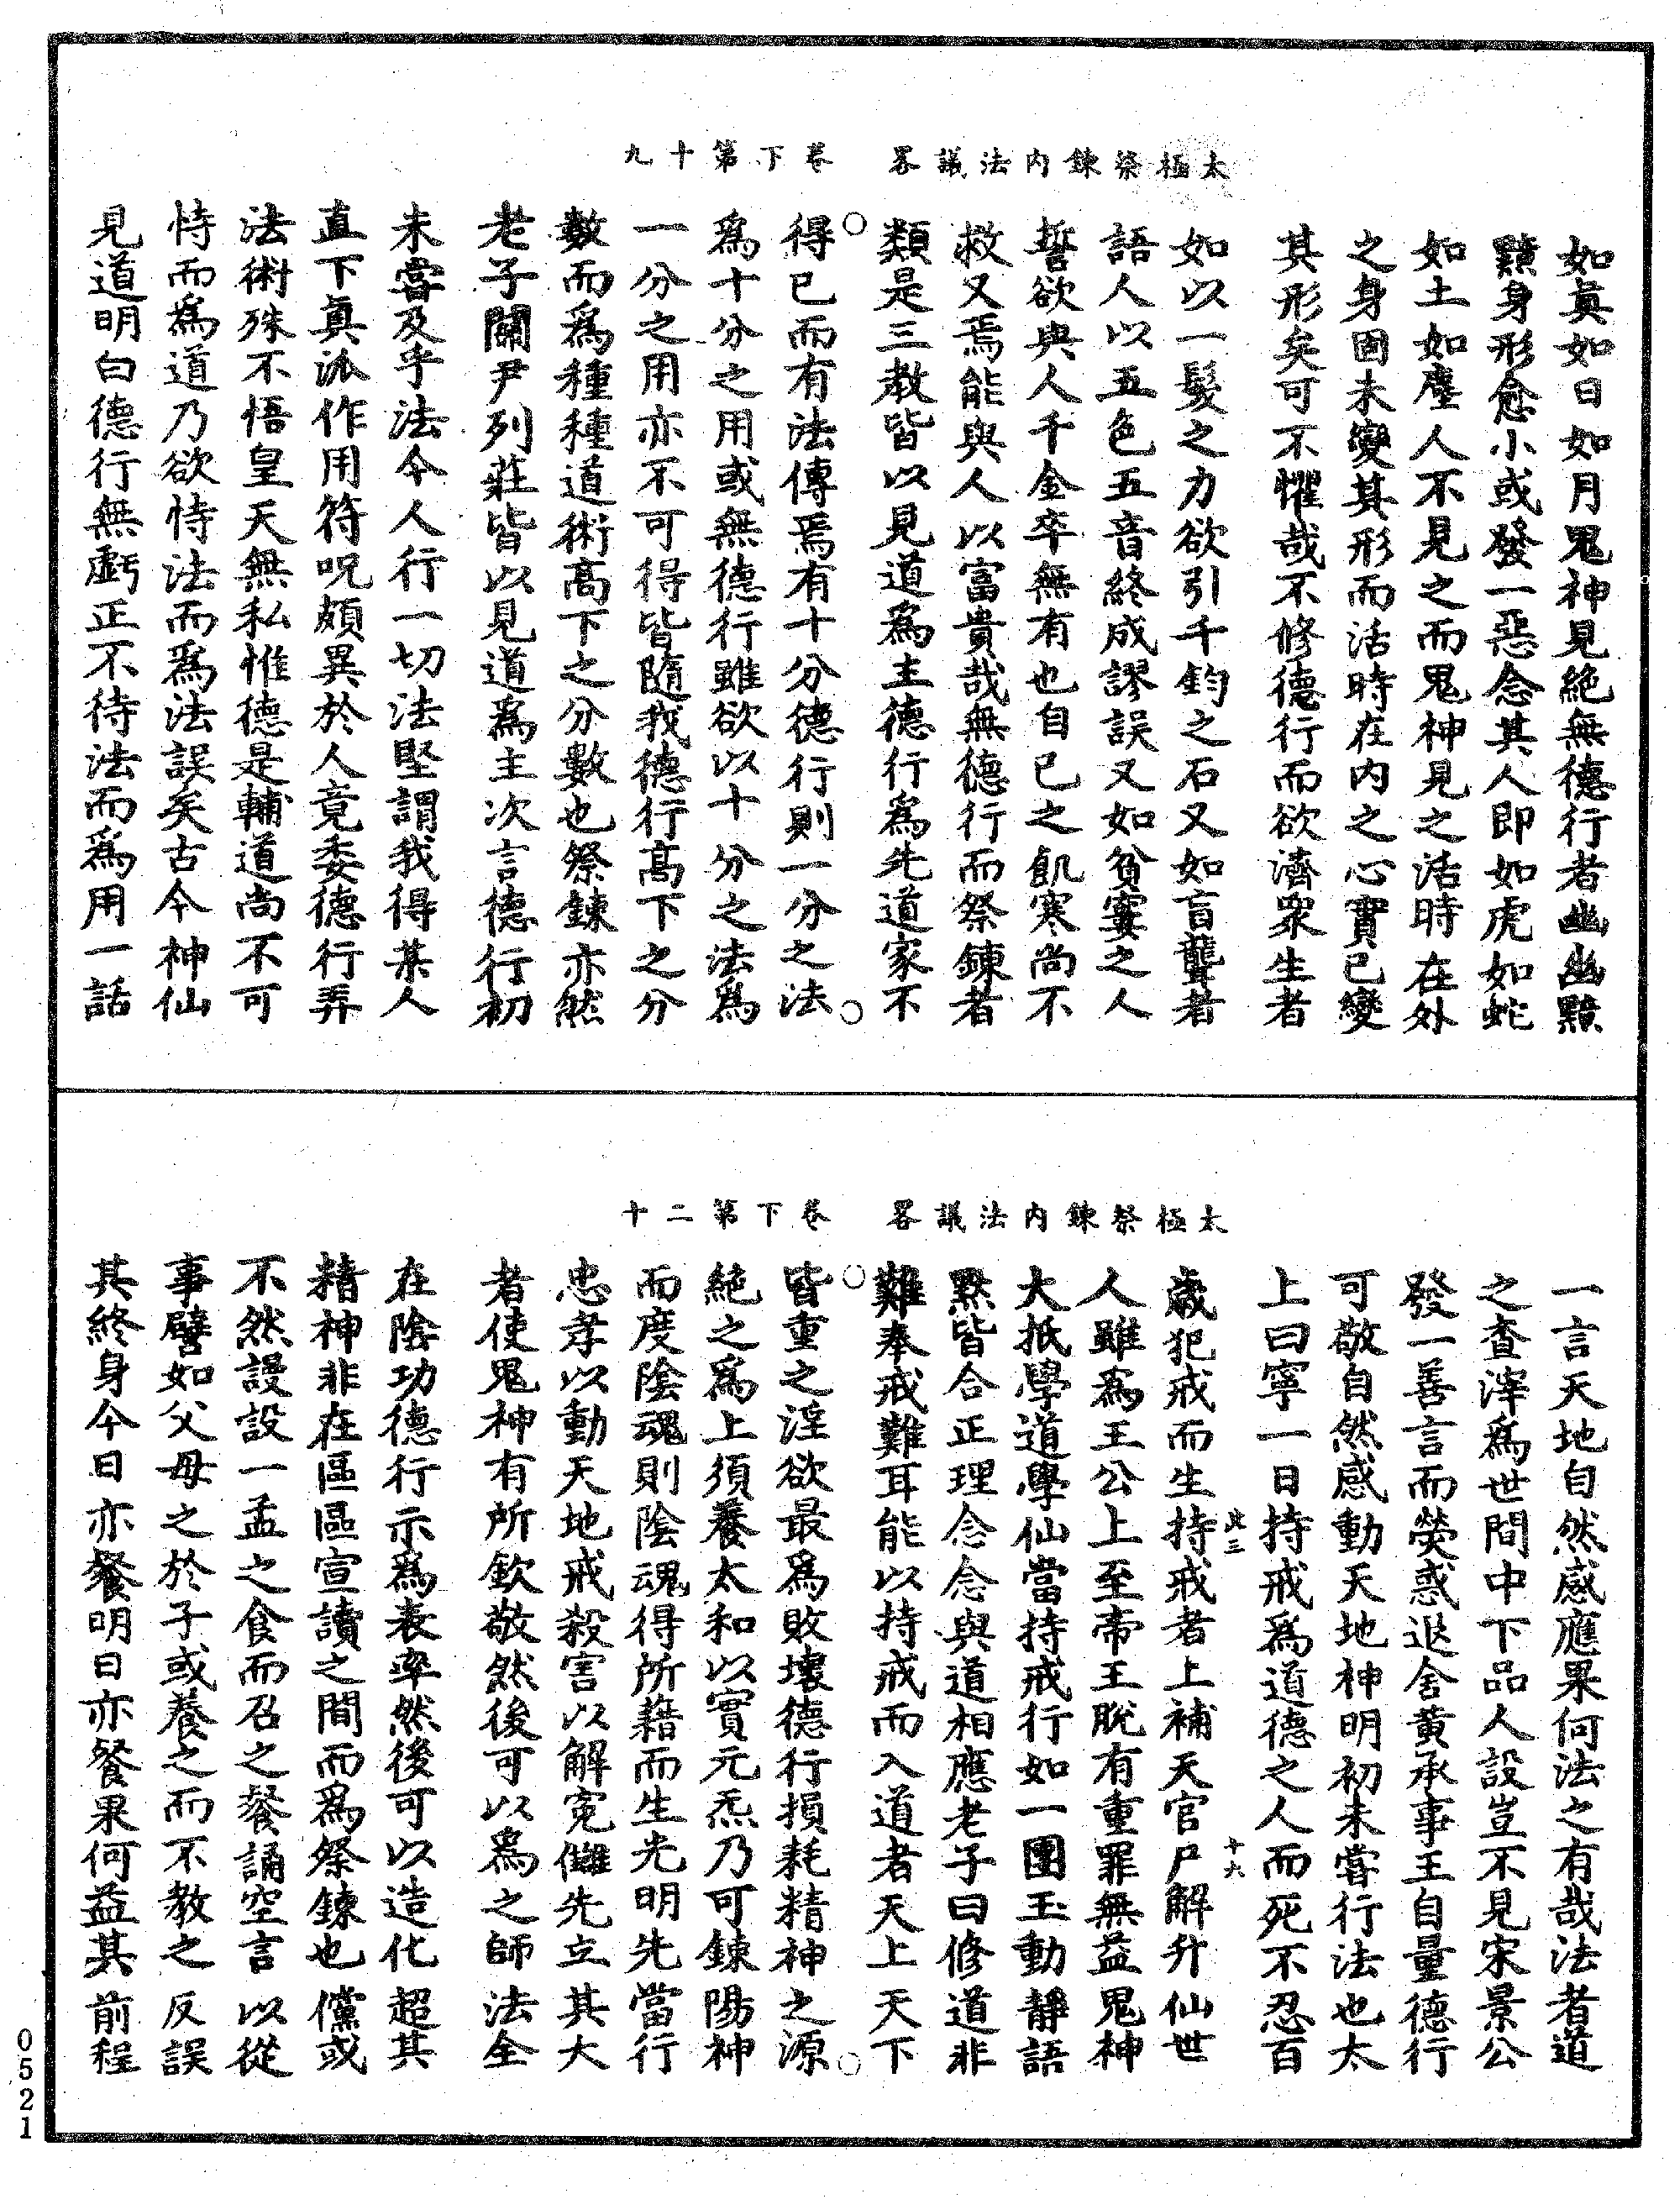 太極祭鍊内法議畧　卷下第十九
如眞如日如月鬼神見絶無德行者幽幽黯
黯身形愈小或發一惡念其人即如虎如蛇
如土如塵人不見之而鬼神見之活時在外
之身固未變其形而活時在内之心實已變
其形矣可不懼哉不修德行而欲濟衆生者
如以一髮之力欲引千鈞之石又如盲聾者
語人以五色五音終成謬誤又如貧窶之人
誓欲與人千金卒無有也自己之飢寒尚不
救又焉能與人以富貴哉無德行而祭鍊者
類是三教皆以見道爲主德行爲先道家不
得已而有法傳焉有十分德行則一分之法
爲十分之用或無德行雖欲以十分之法爲
一分之用亦不可得皆隨我德行高下之分
數而爲種種道術高下之分數也祭鍊亦然
老子關尹列莊皆以見道爲主次言德行初
未嘗及乎法今人行一切法堅謂我得某人
直下眞派作用符呪頗異於人竟委德行弄
法術殊不悟皇天無私惟德是輔道尚不可
恃而爲道乃欲恃法而爲法誤矣古今神仙
見道明白德行無虧正不待法而爲用一話
太極祭鍊内法議畧　卷下第二十
一言天地自然感應果何法之有哉法者道
之查滓爲世間中下品人設豈不見宋景公
發一善言而熒惑退舍黃承事王自量德行
可敬自然感動天地神明初未甞行法也太
上曰寧一日持戒爲道德之人而死不忍百
歲犯戒而生持戒者上補天官尸解升仙世
人雖爲王公上至帝王脫有重罪無益鬼神
大抵學道學仙當持戒行如一團玉動靜語
默皆合正理念念與道相應老子曰修道非
難奉戒難耳能以持戒而入道者天上天下
皆重之淫欲最爲敗壞德行損耗精神之源
絶之爲上須養太和以實元炁乃可鍊陽神
而度陰魂則陰魂得所藉而生光明先當行
忠孝以動天地戒殺害以解寃讎先立其大
者使鬼神有所欽敬然後可以爲之師法全
在陰功德行示爲表率然後可以造化超其
精神非在區區宣讀之間而爲祭鍊也儻或
不然謾設一盂之食而召之餐誦空言以從
事譬如父母之於子或養之而不教之反誤
其終身今日亦餐明日亦餐果何益其前程
十六
0521